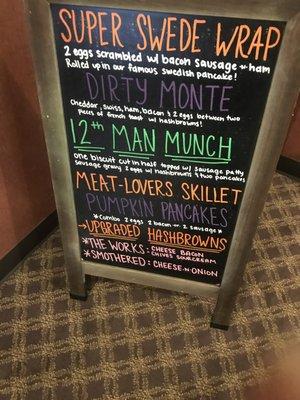 SUPER SWEDE WRAP
2 eggs scrambled w/ bacon sausage or ham
Rolled up in our famous swedish pancake!
DIRTY MONTE
Cheddar, Swiss, ham, bacon & 2 eggs between two
pieces of french toast w/ hashbrowns!
12th MAN MUNCH
one biscuit cut in half topped w/ sausage patty
sausage gravy 2 eggs w/ hashbrowns & two pancakes
MEAT-LOVERS SKILLET
PUMPKIN PANCAKES
*Combo 2 eggs 2 bacon or 2 sausage*
→UPGRADED HASHBROWNS
*THE WORKS: CHEESE BACON
CHIVES SOURCREAM
*SMOTHERED: CHEESE-N-ONION